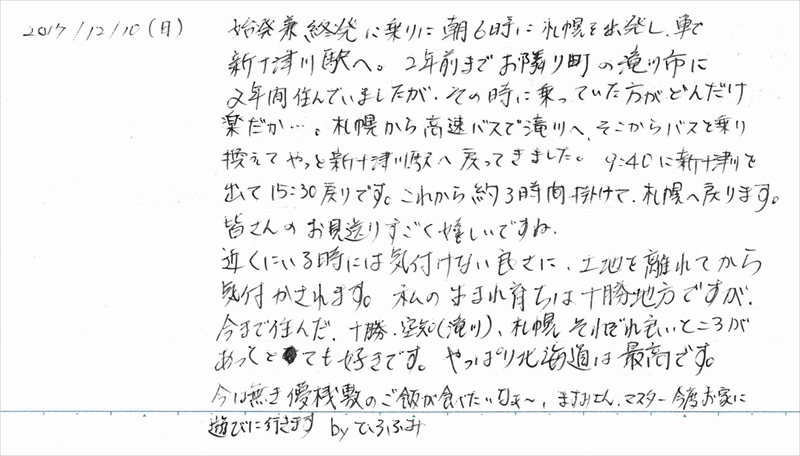 2017/12/10(日) 始発兼終発に乗りに朝6時に札幌を出発し、車で
新十津川駅へ。2年前までお隣り町の滝川市に
2年間住んでいましたが、その時に乗っていた方がどんだけ
楽だか…。札幌から高速バスで滝川へ、そこからバスを乗り
換えてやっと新十津川駅へ戻ってきました。9:40に新十津川を
出て15:30戻りです。これから約3時間掛けて、札幌へ戻ります。
皆さんのお見送りすごく嬉しいですね、
近くにいる時には気付けない良さに、土地を離れてから
気付かされます。私の生まれ育ちは十勝地方ですが、
今まで住んだ、十勝、空知(滝川)、札幌それぞれ良いところが
あってとても好きです。やっぱり北海道は最高です。
今は無き優桟敷のご飯が食べたいなぁ〜、ますみさん、マスター今度お家に
遊びに行きます by ひろふみ